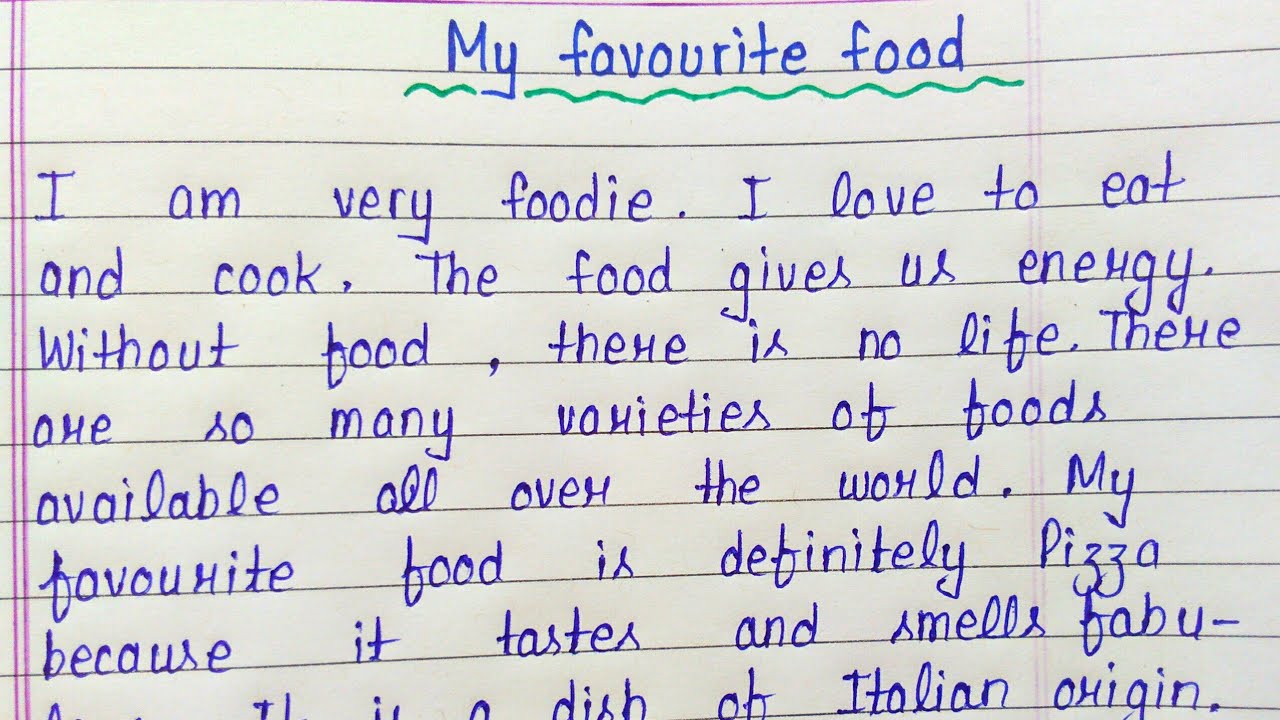 My favourite food
I am very foodie. I love to eat
and cook. The food gives us energy.
Without food, there is no life. There
are so many varieties of foods
available all over the world. My
favourite food is definitely Pizza
because it tastes and smells fabu-
It is a dish of Italian origin.